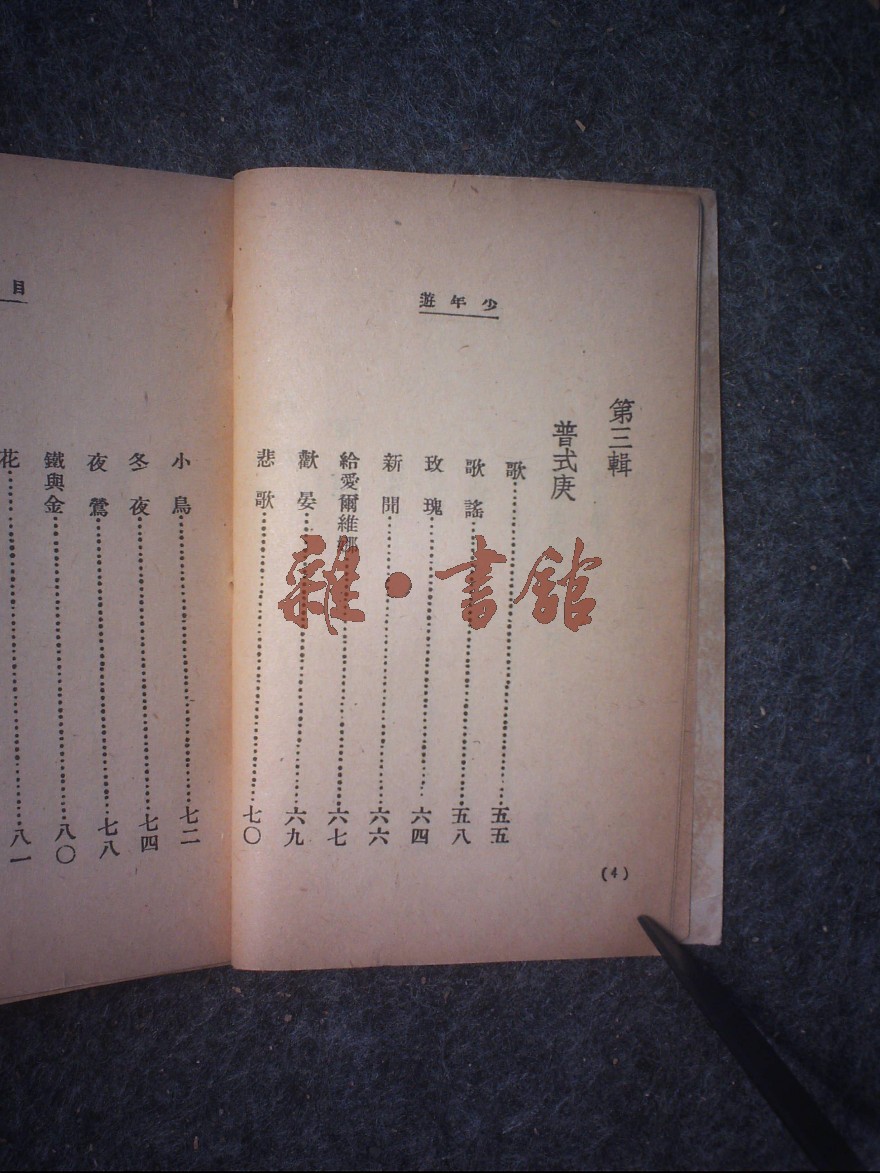 少年遊
第三輯
普式庚
歌……五五
歌謠……五八
玫瑰……六四
新聞……六六
給愛爾維娜……六七
歡晏……六九
悲歌……七〇
(4)
目
小鳥……七二
冬夜……七四
夜鶯……七八
鐵與金……八〇
花……八一
雜·書館